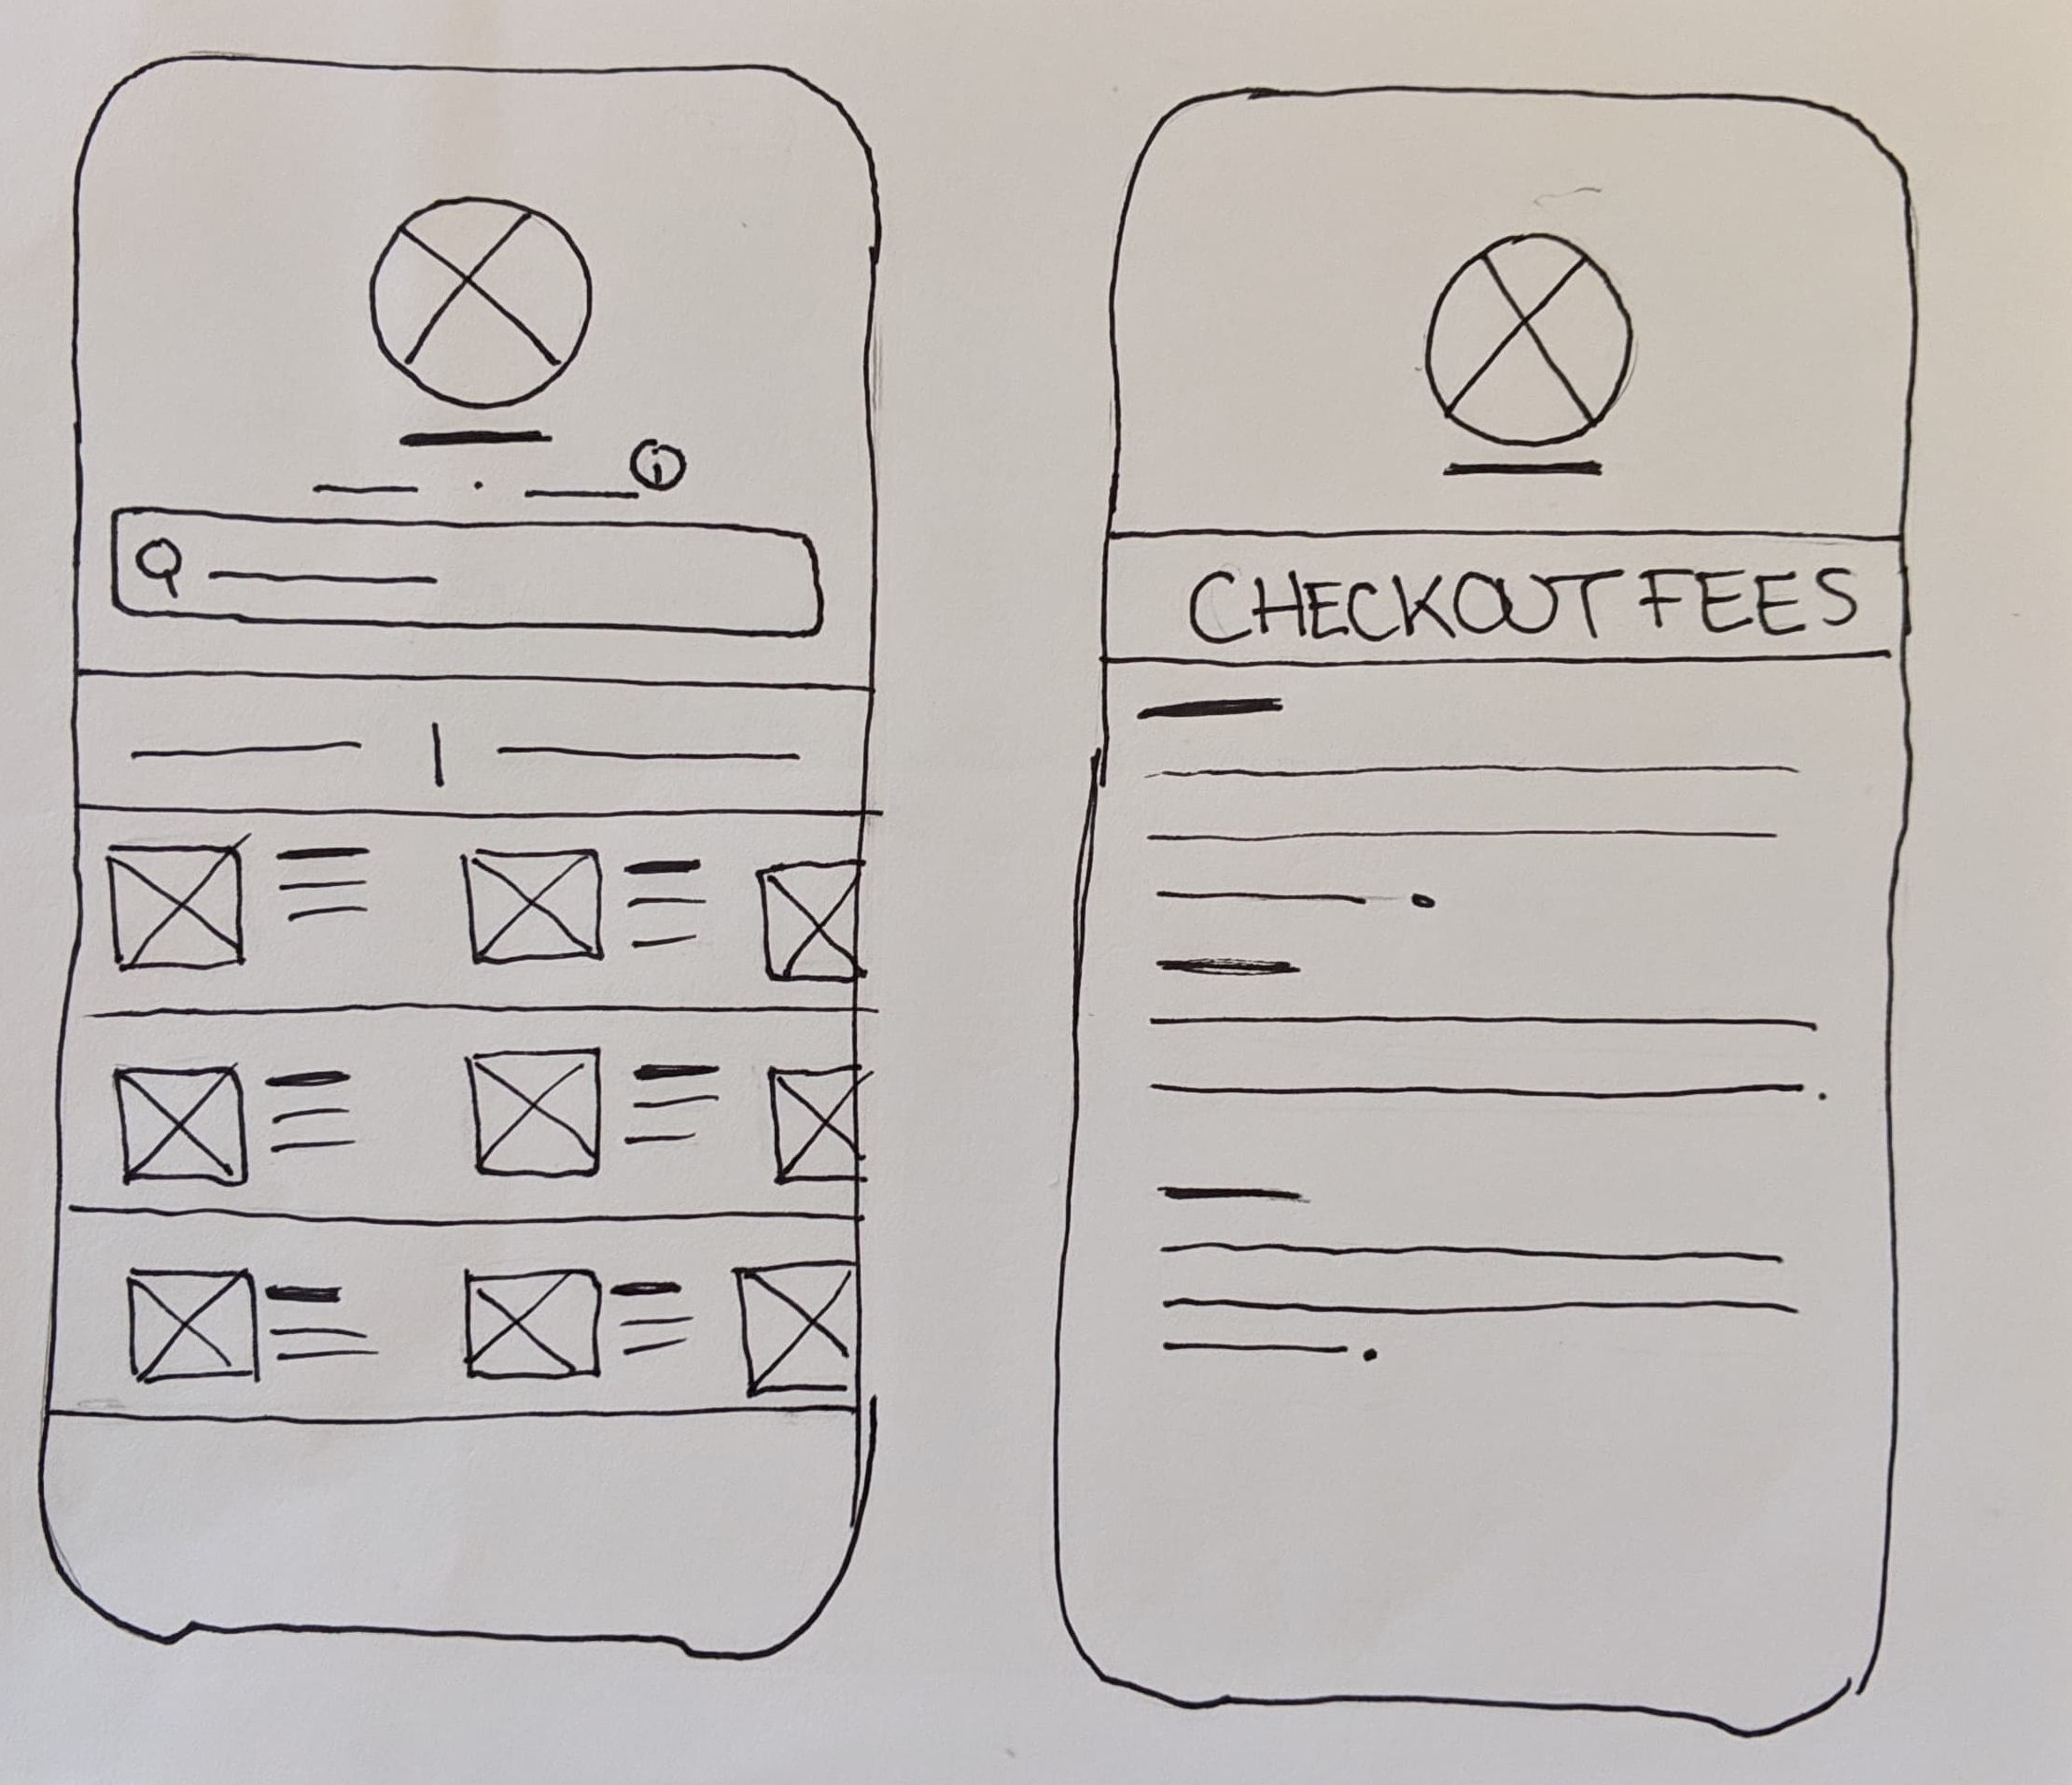 i
CHECKOUT FEES